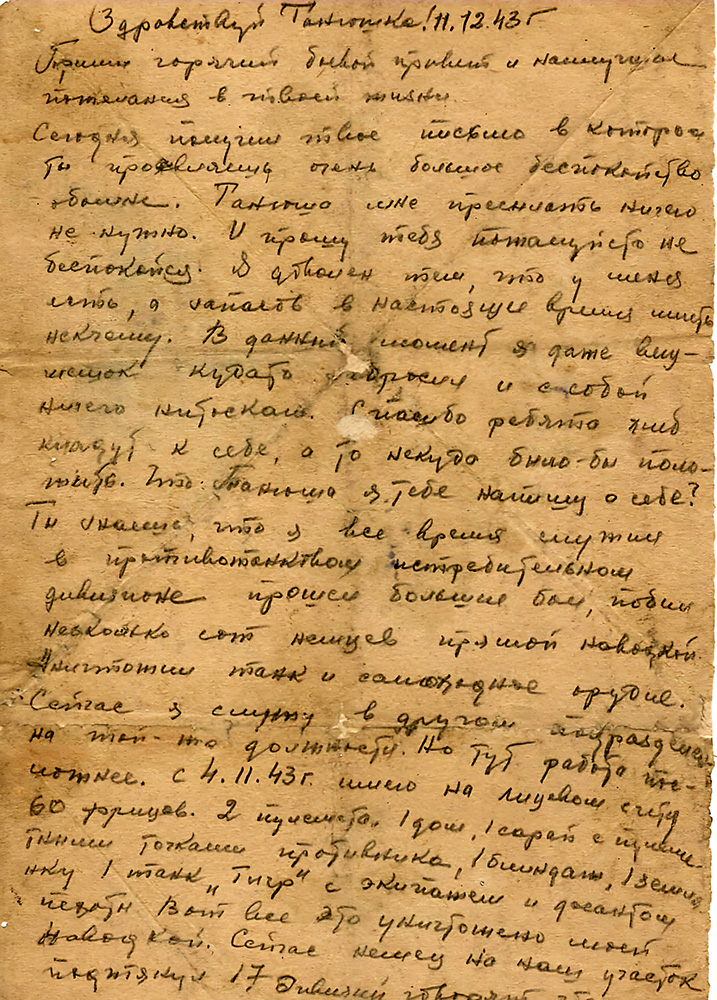 Здравствуй Танюшка! 11.12.43 г
Прими горячий боевой привет и наилучшие
пожелания в твоей жизни.
Сегодня получил твое письмо в котором
ты проявляешь очень большое беспокойство
обомне. Танюша мне присылать ничего
не нужно. И прошу тебя пожалуйсто не
беспокойся. Я доволен тем, что у меня
есть, а запасов в настоящее время иметь
некчему. В данный момент я даже вещ-
мешок кудато забросил и с собой
ничего нитоскаю. Спасибо ребята хлеб
кладут к себе, а то некуда было-бы поло-
жить. Что Танюша я тебе напишу о себе?
Ты знаешь, что я все время служил
в противотанковом истребительном
дивизионе прошел большие бои, побил
несколько сот немцев прямой наводкой.
Уничтожил танк и самоходное орудие.
Сейчас я служу в другом подразделен
на той-же должности. Но тут работа
С 4.11.43 г. имею на лицевом счету
60 фрицев. 2 пулемета, 1 дом, 1 сарай с
точками противника, 1 блиндаж, 1
нку 1 танк „Тигр" с экипажем и десантом
пехоты Вот все это уничтожено моей
наводкой. Сейчас немец на наш участок
подтянул 17